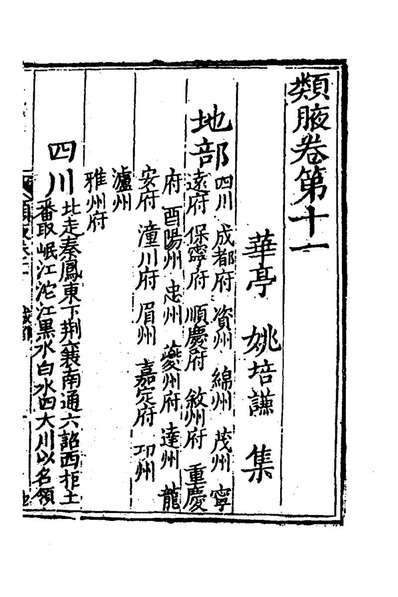 類腋卷第十一
華亭 姚培謙 集
地部
四川 成都府 資州 綿州 茂州 寧
遠府 保寧府 順慶府 敘州府 重慶
府 酉陽州 忠州 夔州府 達州 龍
安府 潼川府 眉州 嘉定府 邛州
瀘州
雅州府
四川
北走秦鳳東下荆襄南通六詔西拒土
番取岷江沱江黑水白水四大川以名領